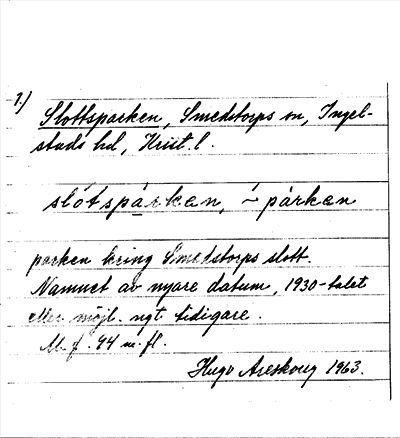 1.)
Slottsparken, Smedstorps sn, Ingel-
stads hd, Krist. l.
slótspàrken, ~ párken
parken kring Smedstorps slott.
Namnet av nyare datum, 1930-talet
eller möjl. ngt tidigare.
M. f. 94 m. fl.
Hugo Areskoug 1963.